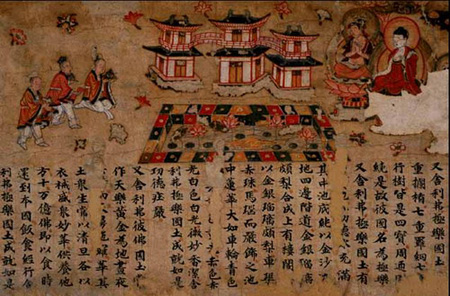 又舍利弗極樂國土
重欄楯七重羅網七
行樹皆是四寶周匝
繞是故彼國名為極樂
又舍利弗極樂國土有
充滿
其中池底純以金沙
地四邊階道金銀琉璃
頗梨合成上有樓閣
以金銀琉璃頗梨車磲
赤珠馬瑙而嚴飾之池
中蓮華大如車輪青色
光白色白光微妙香潔舍
利弗極樂國土成就如是
功德莊嚴
又舍利弗彼佛國土
作天樂黃金為地晝夜
華其
土眾生常以清旦各以
衣裓盛眾妙華供養他
方十万億佛即以食時
還到本國飯食經行舍
利弗極樂國土成就如是